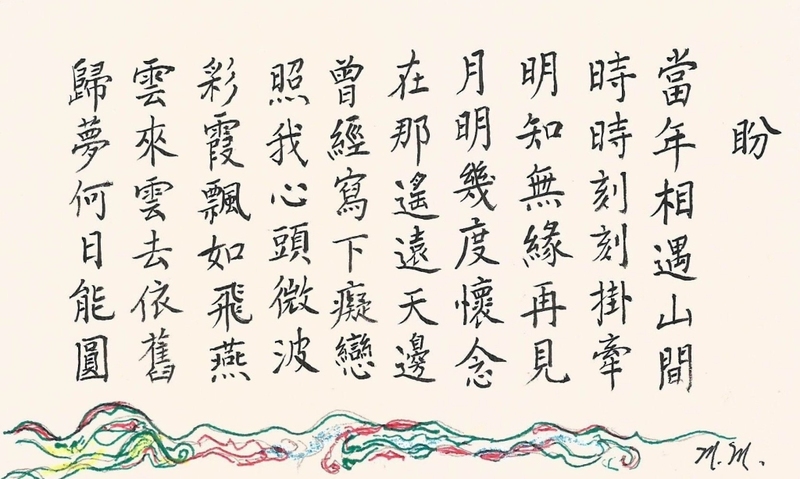 盼
當年相遇山間
時時刻刻掛牽
明知無緣再見
月明幾度懷念
在那遙遠天邊
曾經寫下癡戀
照我心頭微波
彩霞飄如飛燕
雲來雲去依舊
歸夢何日能圓
M.M.